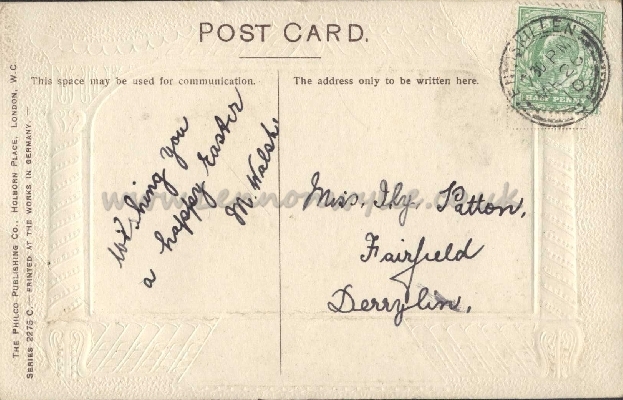 POST CARD.
This space may be used for communication.
The address only to be written here.
Wishing you
a happy Easter
M. Walsh
Miss. Ily Patton,
Fairfield
Derrylin.
THE PHILCO PUBLISHING CO., HOLBORN PLACE, LONDON, W.C.
SERIES 2275 C. — PRINTED AT THE WORKS IN GERMANY. —
HALF PENNY